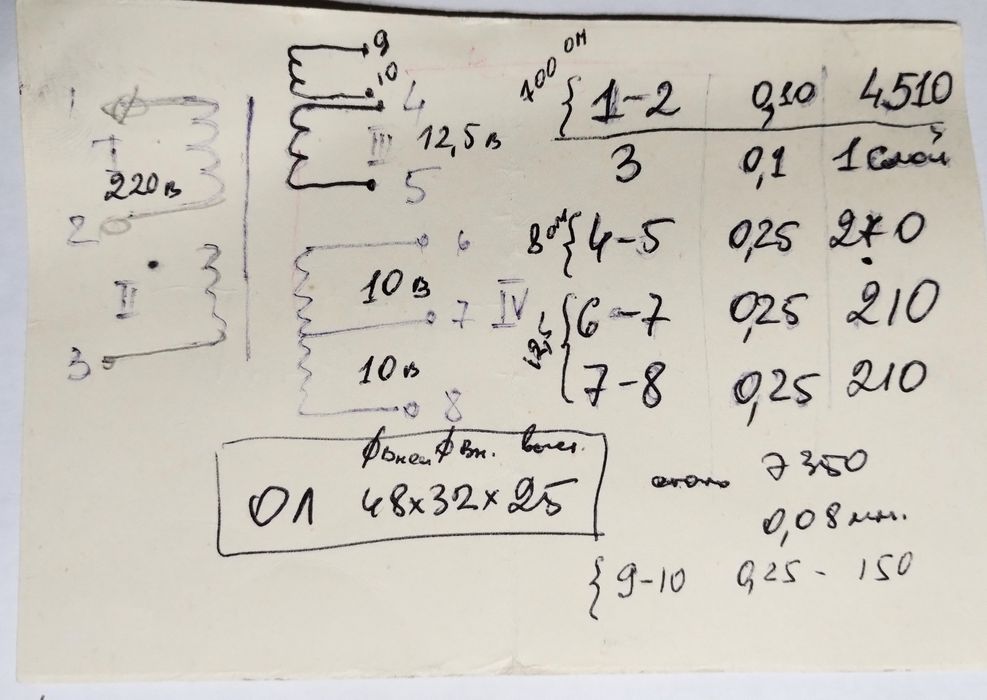 9
10
1
4
I
III 12,5 в
220 в
5
2
6
10 в
II
7 IV
3
10 в
8
700 ом
1-2 0,10 4510
3 0,1 1 слой
8 ом 4-5 0,25 270
12,5 6-7 0,25 210
7-8 0,25 210
Фвнеш Фвн. выс.
ОЛ 48х32х25
около 7350
0,08 мм.
9-10 0,25 - 150